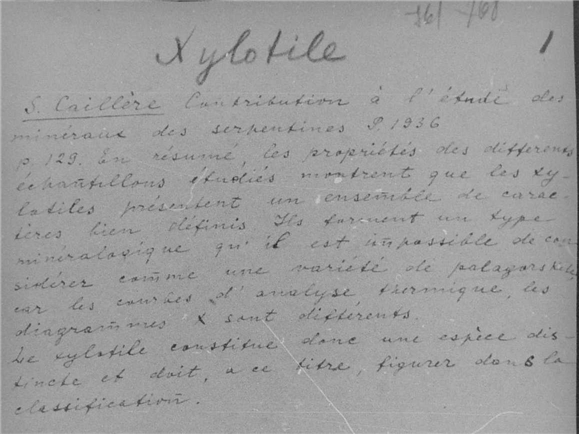 161-168
Xylotile
1
S. Caillère Contribution à l'étude des
minéraux des serpentines P. 1936
p. 129. En résumé, les propriétés des différents
échantillons étudiés montrent que les xy-
lotiles présentent un ensemble de carac-
tères bien définis. Ils forment un type
minéralogique qu'il est impossible de con
sidérer comme une variété de palagorskite,
car les courbes d'analyse thermique, les
diagrammes X sont différents.
Le xylotile constitue donc une espèce dis-
tincte et doit, a ce titre, figurer dans la
classification.